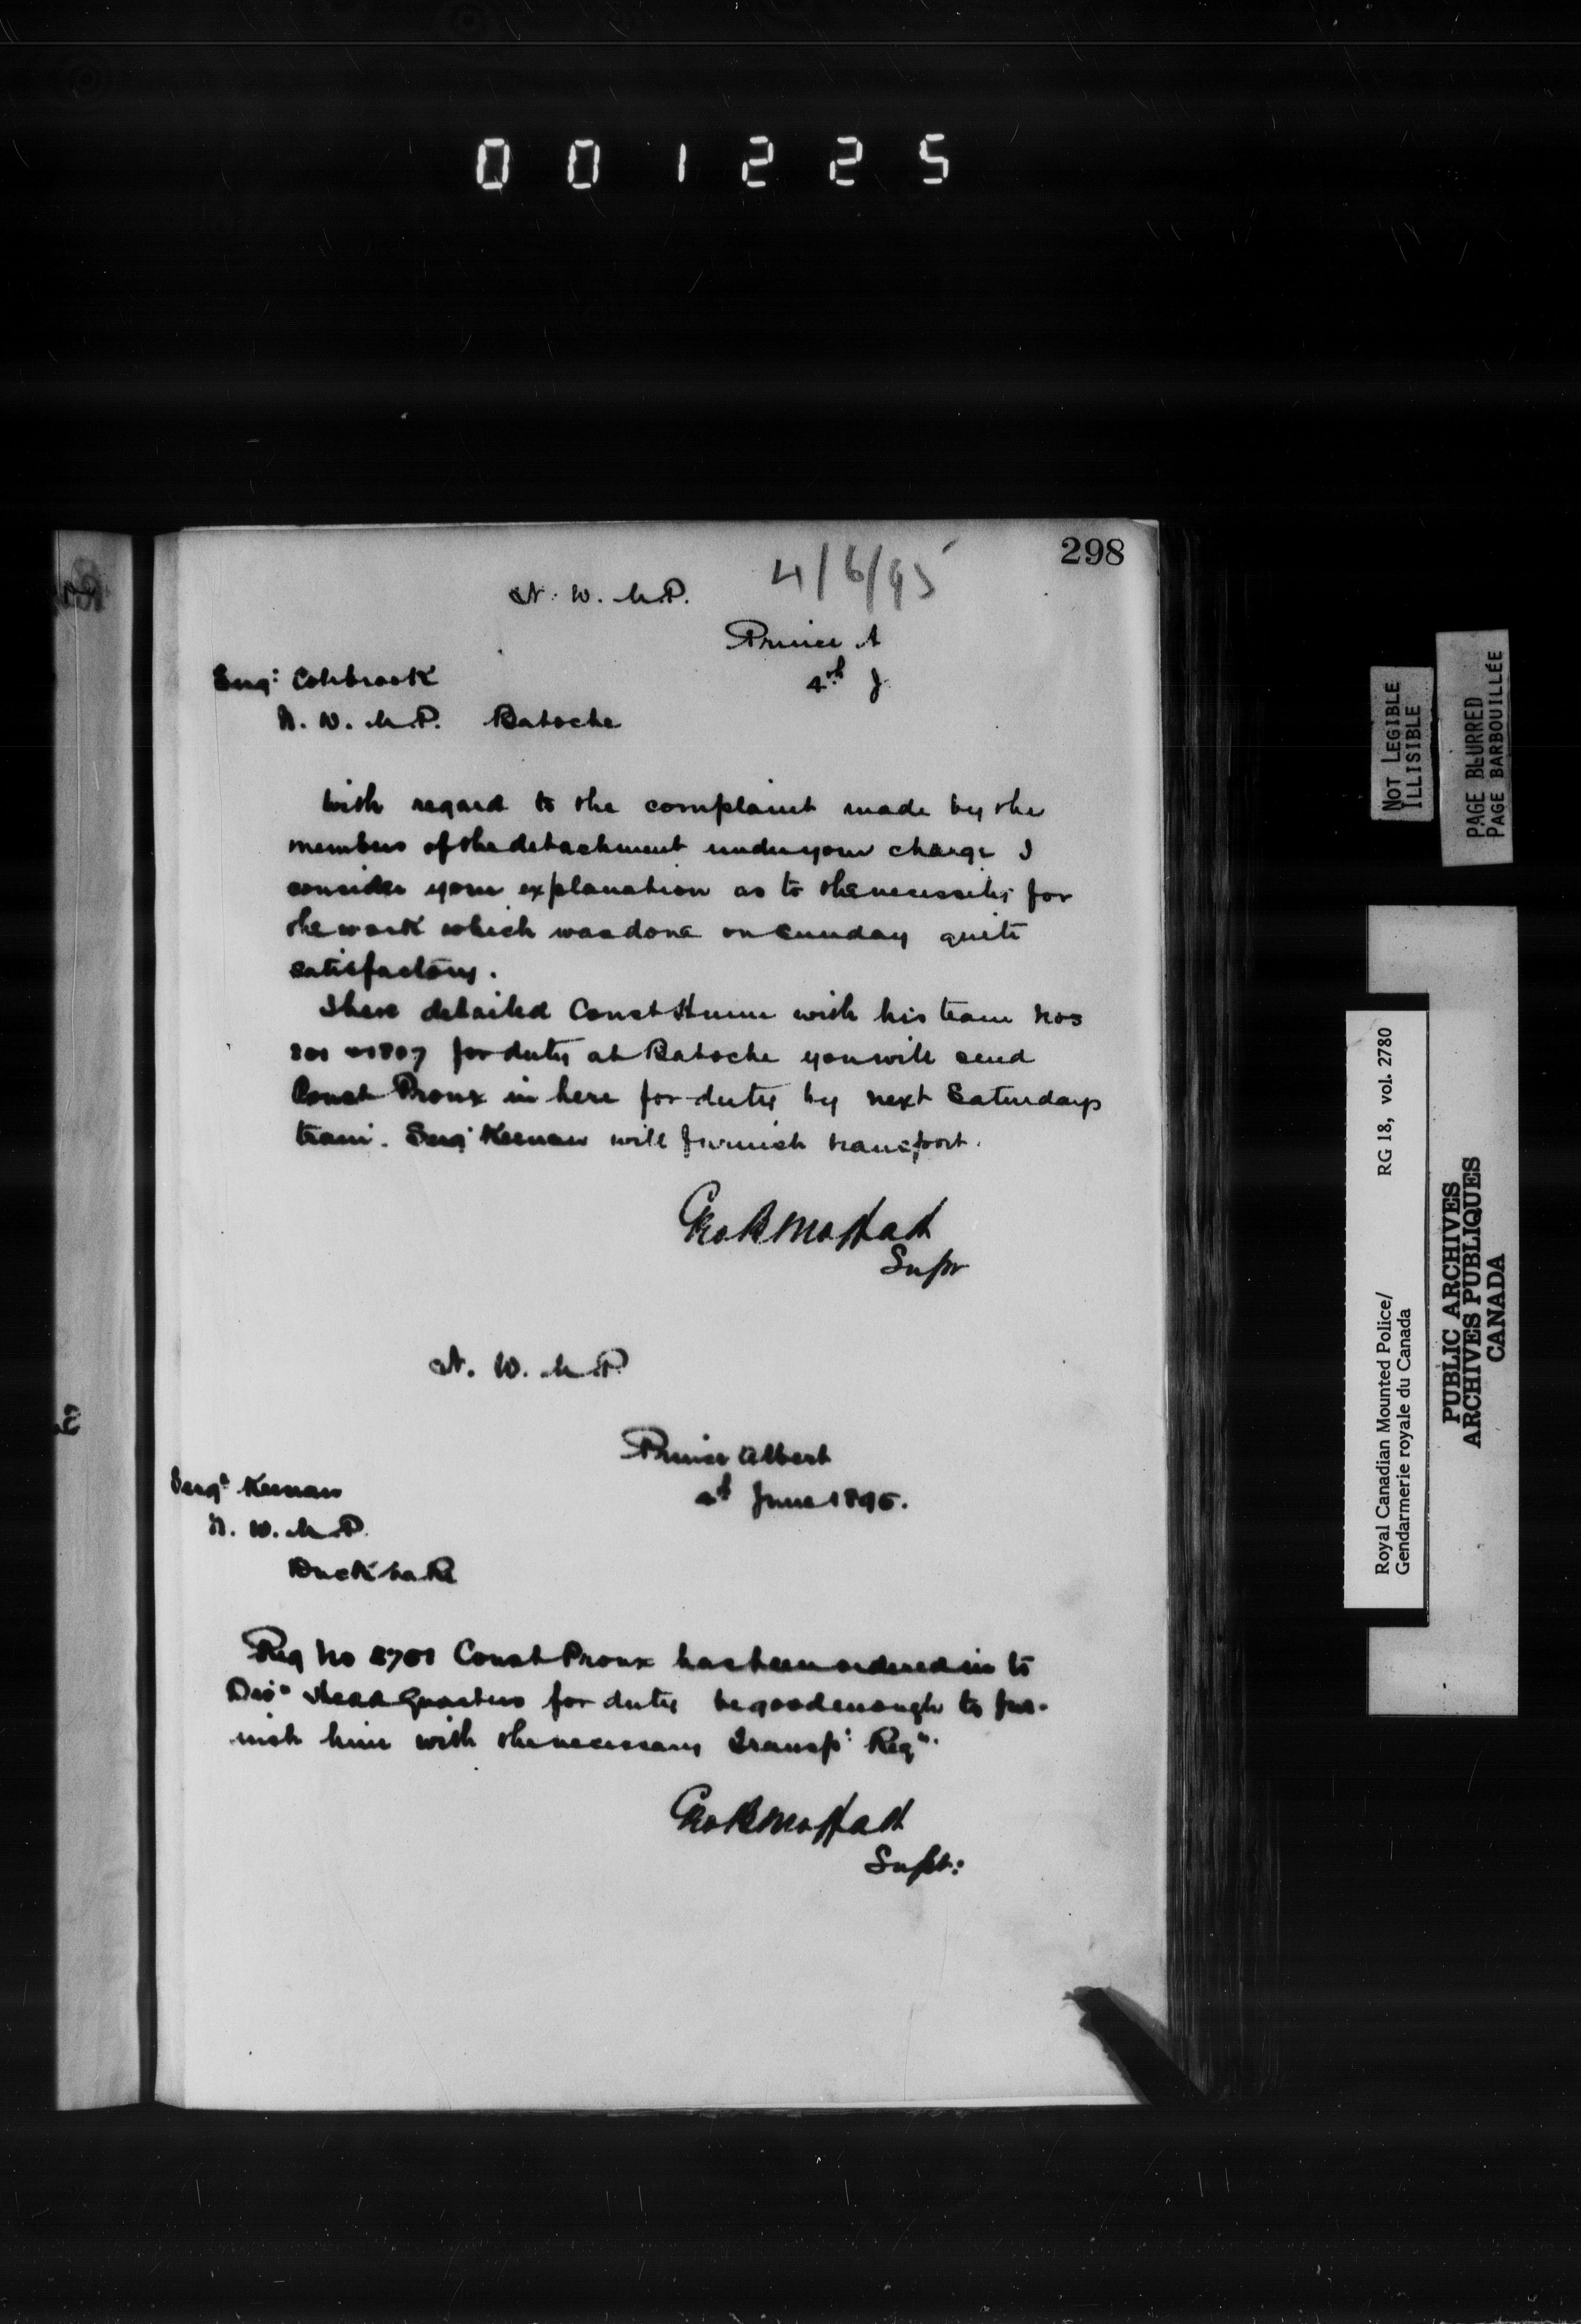 001225
298
4/6/95
N. W. M.P.
Prince A
4th J
Sergt Colebrook
N. W. M.P. Batoche
With regard to the complaint made by the
members of the detachment under your charge I
consider your explanation as to the necessity for
the work which was done on Sunday quite
satisfactory.
I have detailed Const with his team Nos
for duty at Batoche you will send
Const Proux in here for duty by next Saturdays
train. Sergt Keenan will furnish transport.
Geo B Moffatt
Supt
N. W. M.P.
Prince Albert
4th June 1895.
Sergt Keenan
N. W. M.P.
Duck Lake
Reg No Const Proux has been ordered in to
Divn Head Quarters for duty be good enough to fur-
nish him with the necessary Transpt Reqn.
Geo B Moffatt
Supt:
NOT LEGIBLE
ILLISIBLE
PAGE BLURRED
PAGE BARBOUILLÉE
Royal Canadian Mounted Police/ RG 18, vol. 2780
Gendarmerie royale du Canada
PUBLIC ARCHIVES
ARCHIVES PUBLIQUES
CANADA